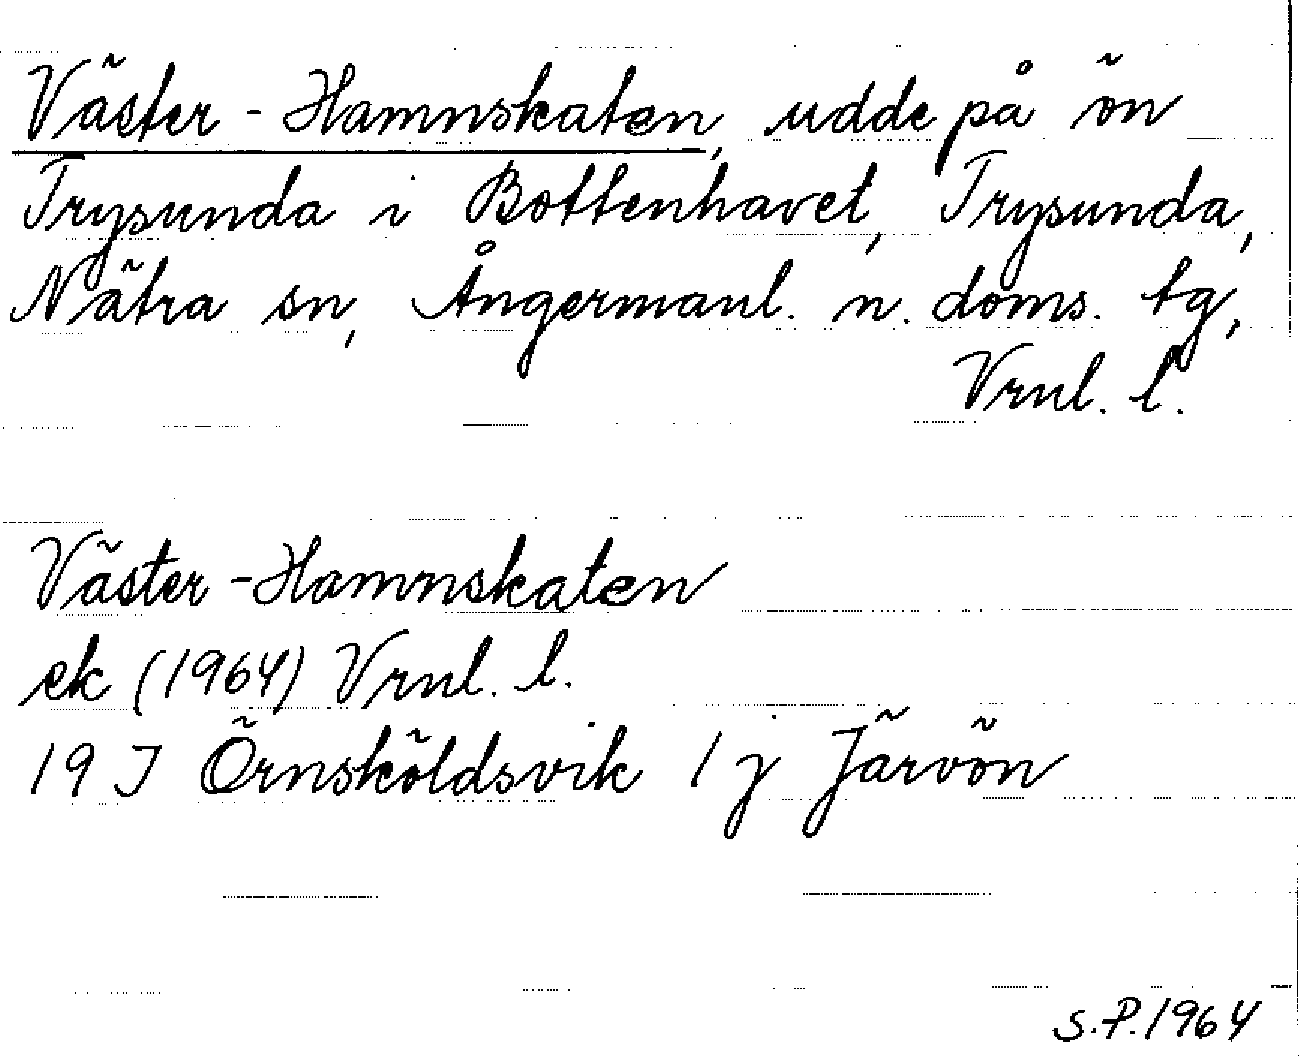 Väster-Hamnskaten, udde på ön
Trysunda i Bottenhavet, Trysunda,
Nätra sn, Ångermanl. n. doms. tg,
Vrnl. l.
Väster-Hamnskaten
ek (1964) Vrnl. l.
19 J Örnsköldsvik 1 j Järvön
S.P. 1964